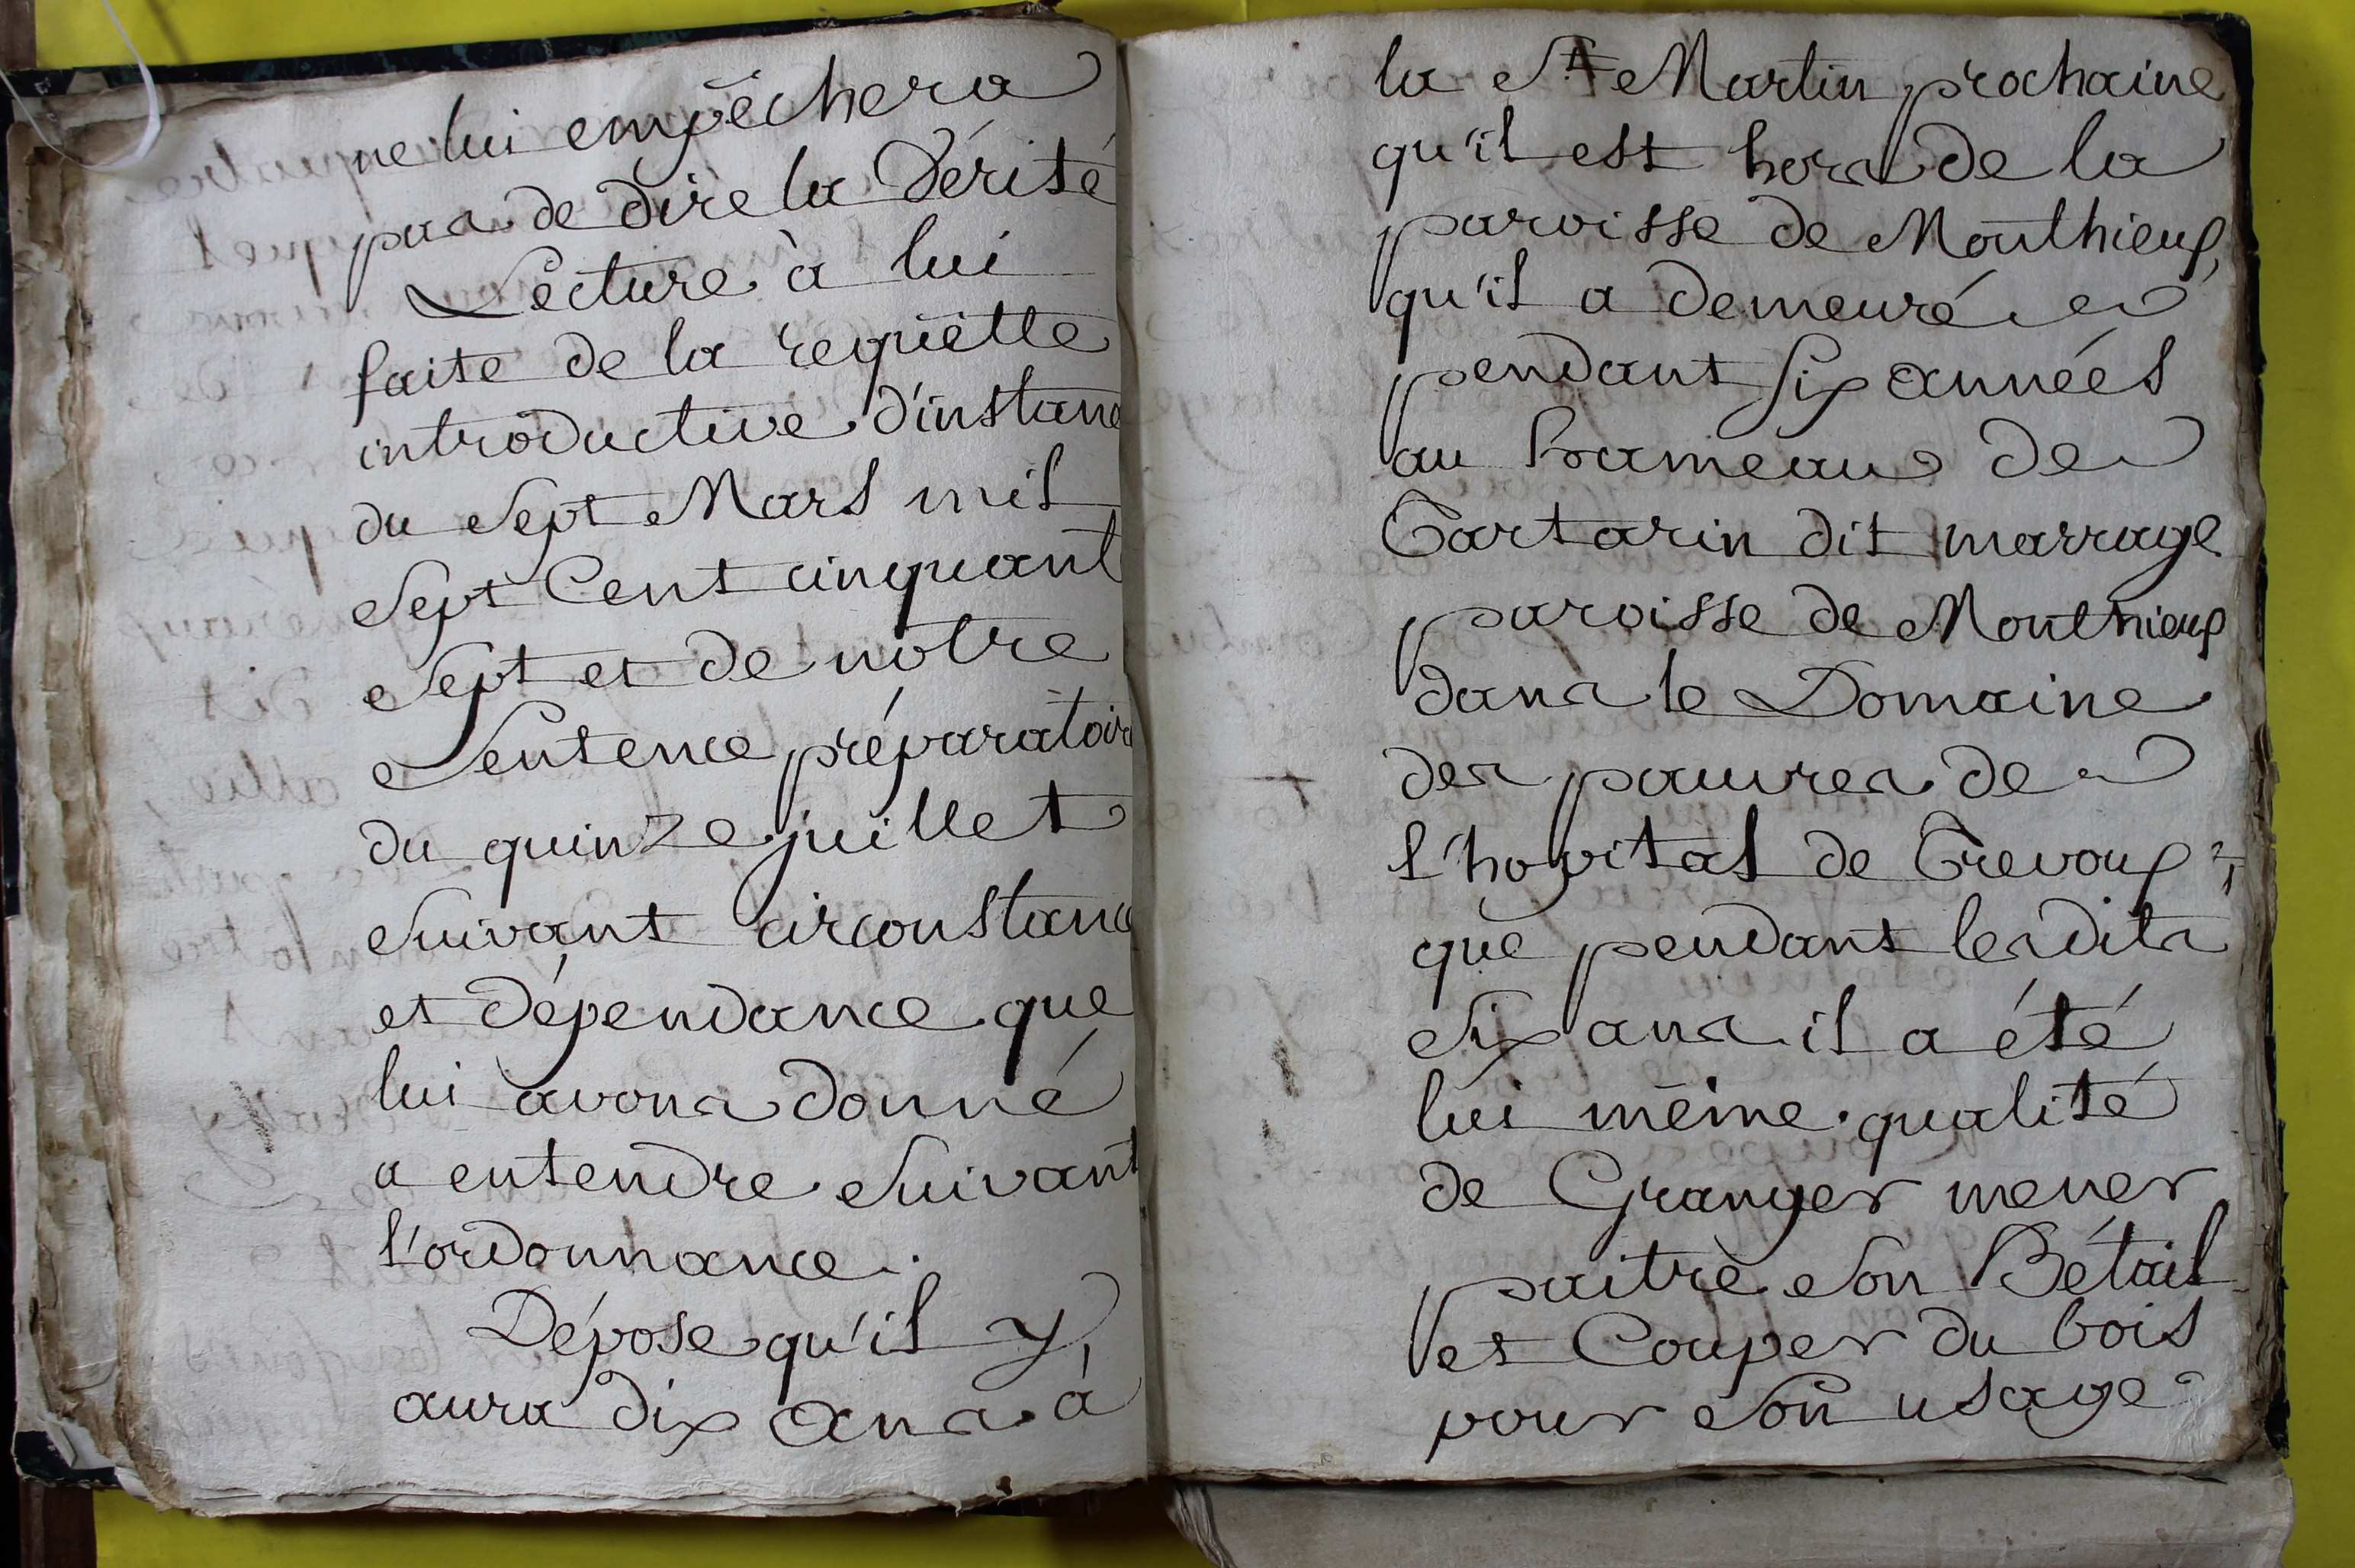 ne lui empêchera
pas de dire la Vérité
Lecture à lui
faite de la requëtte
introductive d'instanc
du Sept Mars mil
Sept Cent cinquant
Sept et de notre
Sentence préparatoire
du quinze juillet
Suivant circonstance
et dépendance que
lui avons donné
a entendre Suivant
l'ordonnance.
Dépose qu'il y
aura dix ans à
la St Martin prochaine
qu'il est hors de la
paroisse de Monthieux,
qu'il a demeuré
pendant Six années
au hameau de
Tartarin dit marrage
paroisse de Monthieux
dans le Domaine
des pauvres de
l'hopital de Trevoux;
que pendant lesdits
Six ans il a été
lui même qualité
de Granger mener
paitre Son Bétail
et Couper du bois
pour Son usage